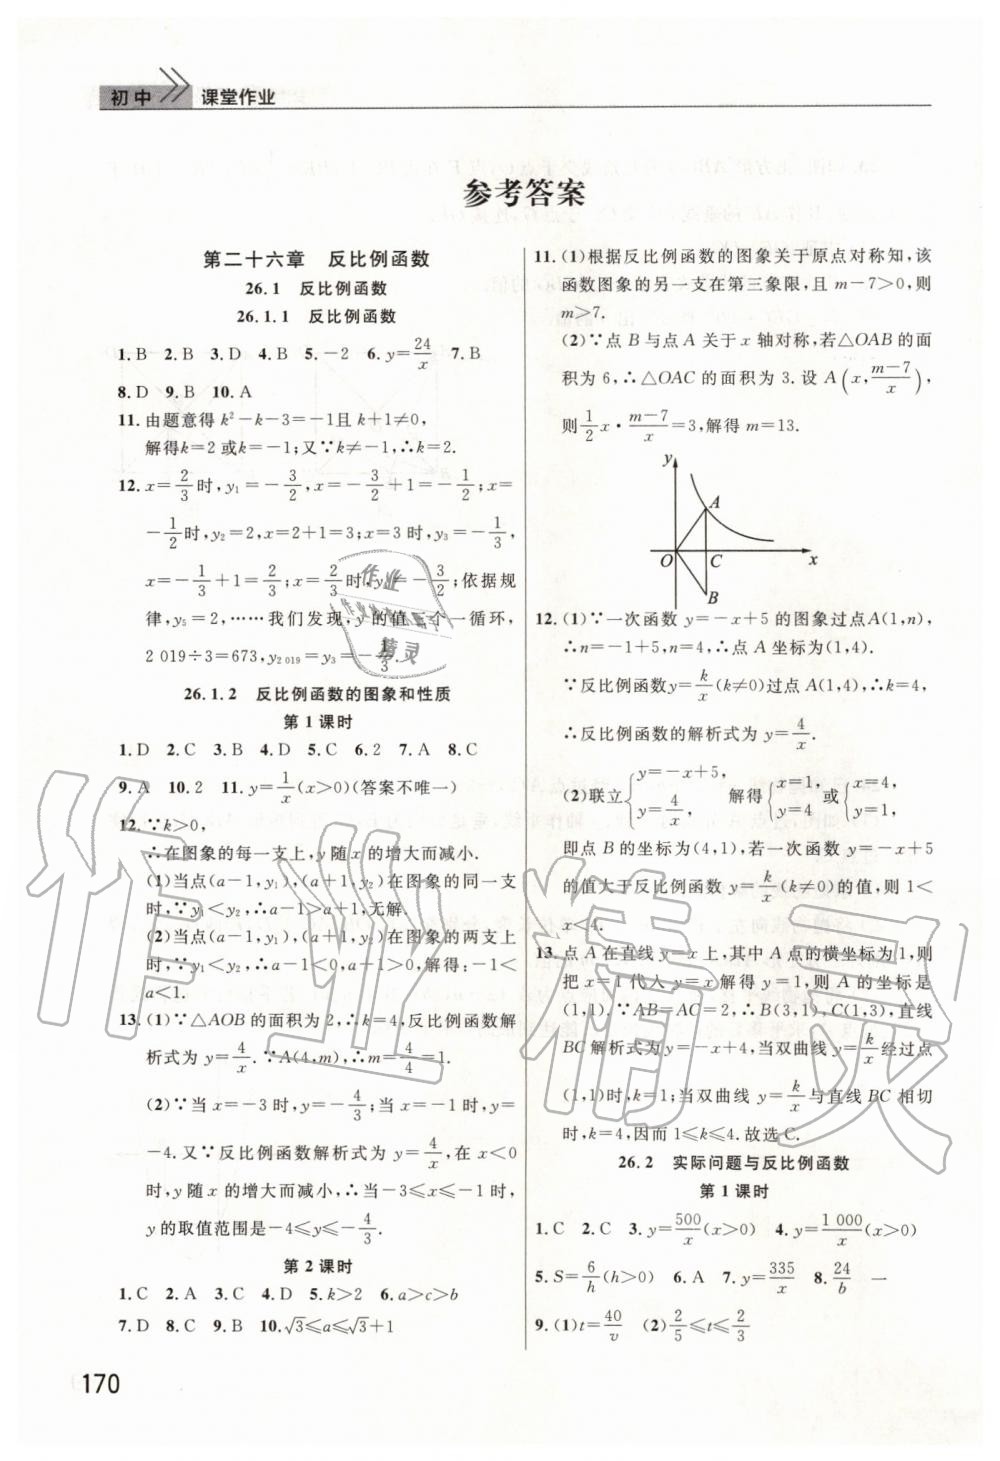 初中 课堂作业
参考答案
第二十六章 反比例函数
26.1 反比例函数
26.1.1 反比例函数
1. B 2. B 3. D 4. B 5. -2 6. y=24/x 7. B
8. D 9. B 10. A
11. 由题意得 k²-k-3=-1且 k+1≠0,
解得k=2 或k=-1;又∵k≠-1,∴k=2.
12. x=2/3时,y₁=-3/2,x=-3/2+1=-1/2;x=
-1/2时,y₂=2,x=2+1=3;x=3 时,y₃=-1/3,
x=-1/3+1=2/3;x=2/3时,y₄=-3/2;依据规
律,y₅=2,……我们发现,y 的值三个一循环,
2 019÷3=673,y₂ ₀₁₉=y₃=-1/3.
26.1.2 反比例函数的图象和性质
第 1 课时
1. D 2. C 3. B 4. D 5. C 6. 2 7. A 8. C
9. A 10. 2 11. y=1/x(x>0)(答案不唯一)
12. ∵k>0,
∴在图象的每一支上,y 随 x 的增大而减小.
(1)当点(a-1,y₁),(a+1,y₂)在图象的同一支
时,∵y₁<y₂,∴a-1>a+1,无解.
(2)当点(a-1,y₁),(a+1,y₂)在图象的两支上
时,∵y₁<y₂,∴a-1<0,a+1>0,解得:-1<
a<1.
13. (1)∵△AOB 的面积为 2,∴k=4,反比例函数解
析式为 y=4/x.∵A(4,m),∴m=4/4=1.
(2)∵当 x=-3 时,y=-4/3;当 x=-1 时,y=
-4.又∵反比例函数解析式为 y=4/x,在 x<0
时,y 随 x 的增大而减小,∴当-3≤x≤-1 时,
y 的取值范围是-4≤y≤-4/3.
第 2 课时
1. C 2. A 3. C 4. D 5. k>2 6. a>c>b
7. D 8. C 9. B 10. √3≤a≤√3+1
11. (1)根据反比例函数的图象关于原点对称知,该
函数图象的另一支在第三象限,且 m-7>0,则
m>7.
(2)∵点 B 与点 A 关于 x 轴对称,若△OAB 的面
积为 6,∴△OAC 的面积为 3.设 A(x,(m-7)/x),
则1/2x·(m-7)/x=3,解得 m=13.
y
A
O C x
B
12. (1)∵一次函数 y=-x+5 的图象过点 A(1,n),
∴n=-1+5,n=4,∴点 A 坐标为(1,4).
∵反比例函数y=k/x(k≠0)过点 A(1,4),∴k=4,
∴反比例函数的解析式为 y=4/x.
(2)联立{y=-x+5, y=4/x, 解得{x=1, y=4 或{x=4, y=1,
即点 B 的坐标为(4,1),若一次函数 y=-x+5
的值大于反比例函数 y=k/x(k≠0)的值,则 1<
x<4.
13. 点 A 在直线 y=x 上,其中 A 点的横坐标为 1,则
把 x=1 代入 y=x 解得 y=1,则 A 的坐标是
(1,1).∵AB=AC=2,∴B(3,1),C(1,3),直线
BC 解析式为 y=-x+4,当双曲线 y=k/x经过点
(1,1)时,k=1;当双曲线 y=k/x与直线 BC 相切
时,k=4,因而 1≤k≤4.故选 C.
26.2 实际问题与反比例函数
第 1 课时
1. C 2. C 3. y=500/x(x>0) 4. y=1 000/x(x>0)
5. S=6/h(h>0) 6. A 7. y=335/x 8. 24/b 一
9. (1)t=40/v (2)2/5≤t≤2/3
170
作业
精灵
作业精灵